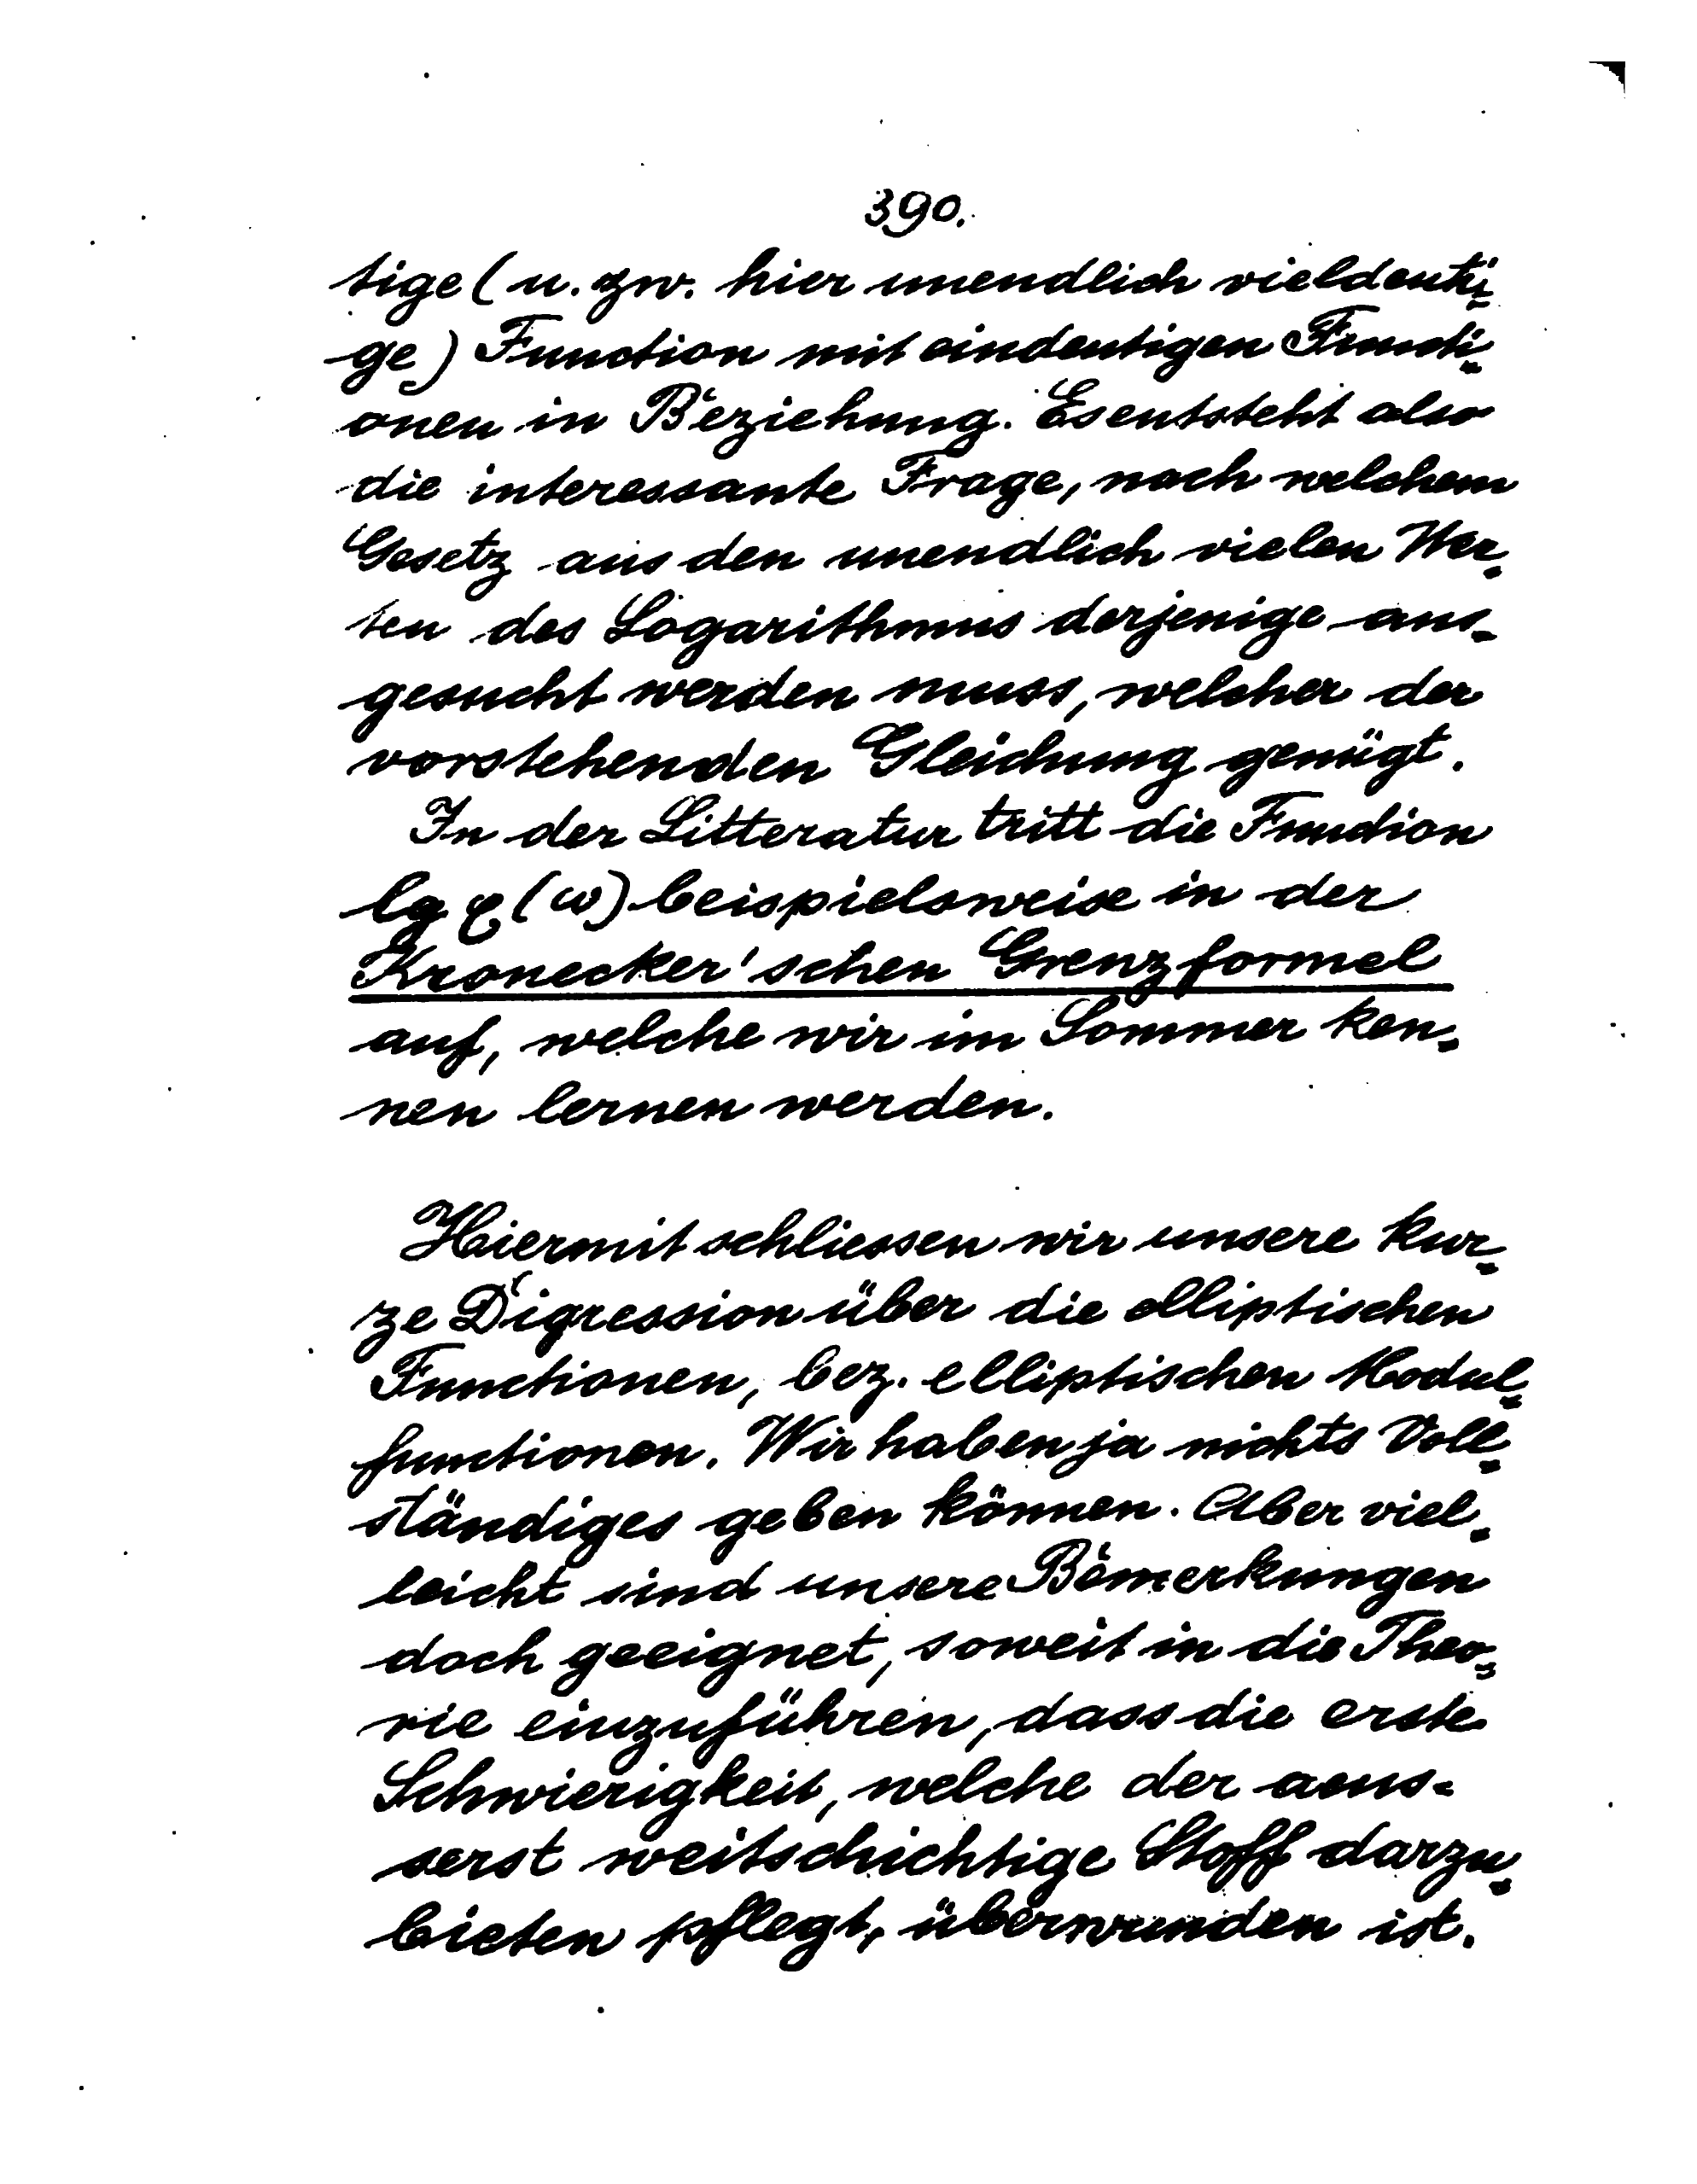 390.
tige (u. zw. hier unendlich vieldeuti-
ge) Function mit eindeutigen Functi-
onen in Beziehung. Es entsteht also
die interessante Frage, nach welchem
Gesetz aus den unendlich vielen Wer-
ten des Logarithmus derjenige aus-
gesucht werden muss, welcher der
vorstehenden Gleichung genügt.
In der Litteratur tritt die Function
lg φ (ω) beispielsweise in der
Kronecker'schen Grenzformel
auf, welche wir im Sommer ken-
nen lernen werden.
Hiermit schliessen wir unsere kur-
ze Digression über die elliptischen
Functionen, bez. elliptischen Modul-
functionen. Wir haben ja nichts Voll-
ständiges geben können. Aber viel-
leicht sind unsere Bemerkungen
doch geeignet, soweit in die Theo-
rie einzuführen, dass die erste
Schwierigkeit, welche der aeus-
serst weitschichtige Stoff darzu-
bieten pflegt, überwunden ist.